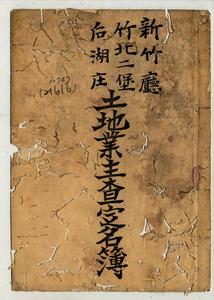 新竹廳
竹北二堡
后湖庄
土地業主查定名簿
(21616)